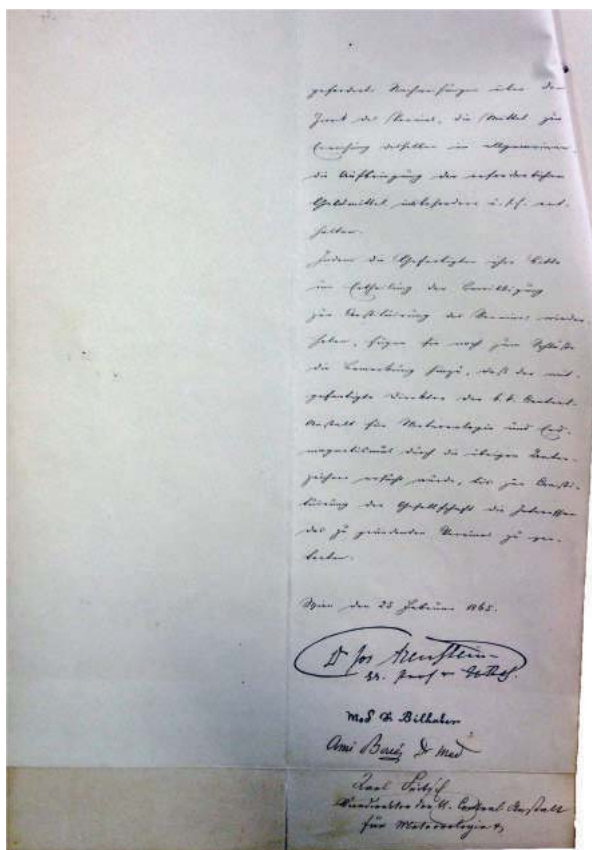 geforderten Nachweisungen über den
Zweck des Vereins, die Mittel zur
Erreichung desselben im allgemeinen,
die Aufbringung der erforderlichen
Geldmittel insbesondere u. s. f. ent-
halten.
Indem die Gefertigten ihre Bitte
um Ertheilung der Bewilligung
zur Constituirung des Vereines wieder-
holen, fügen sie noch zum Schluße
die Bemerkung hinzu, daß der mit-
gefertigte Direktor der k. k. Central-
Anstalt für Meteorologie und Erd-
magnetismus durch die übrigen Unter-
zeichner ersucht wurde, bis zur Consti-
tuirung der Gesellschaft die Interessen
des zu gründenden Vereines zu ver-
treten.
Wien den 23 Februar 1865.
Dr Jos Arenstein
Med Dr Bilhuber
Ami Boué Dr Med
Karl Fritsch
Vicedirektor der k. Central Anstalt
für Meteorologie &